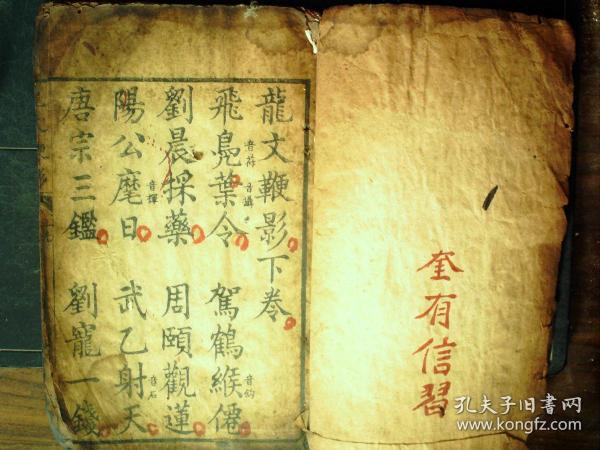 奎有信習
龍文鞭影下卷
飛鳧葉令 駕鶴緱僊
音符 音攝 音鈎
劉晨採藥 周頤觀蓮
陽公麾日 武乙射天
音揮 音石
唐宗三鑑 劉寵一錢
孔夫子旧书网
www.kongfz.com